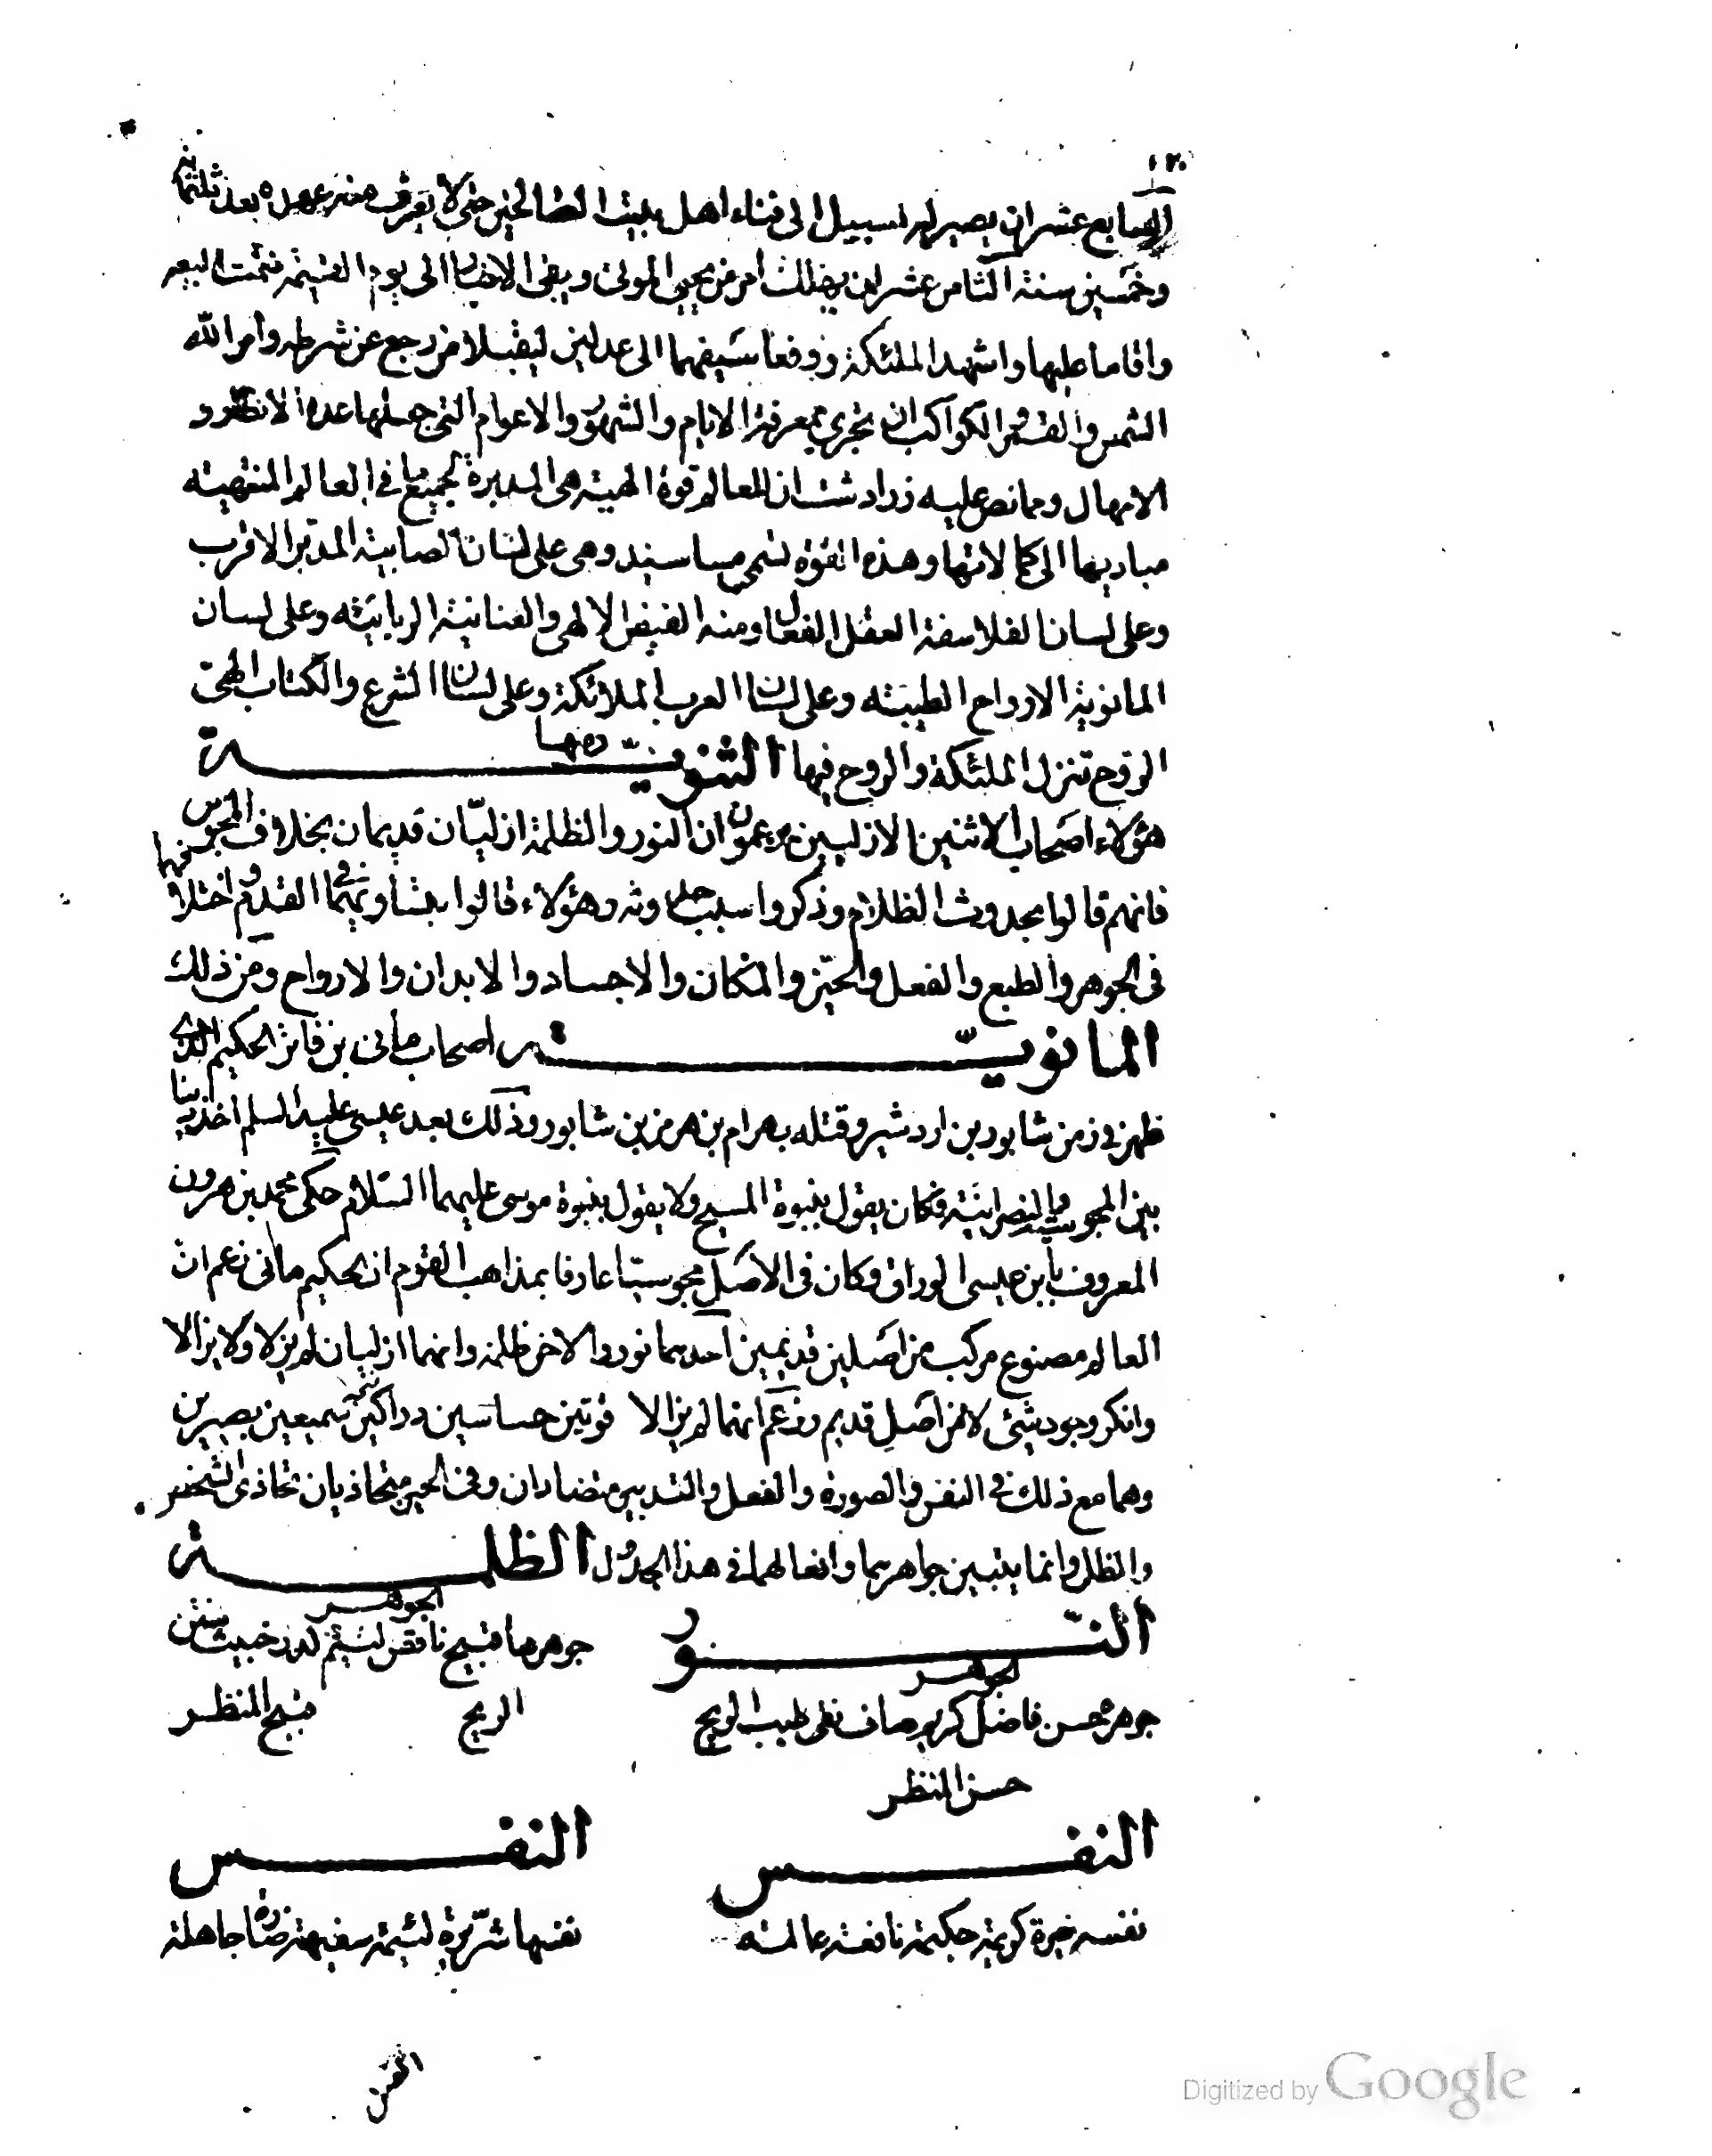 ١٢٠
السابع عشر ان يصير له سبيل الى فناء اهل بيت الصالحين حتى لا يعرف منر عهده بعد ثلثمائة
وخمسين سنة الثامن عشر ان يفلك امر من يحيى الموتى ويبقى الاخفاء الى يوم القيمة فتمت البيعة
واقاما عليها واشهدا الملئكة ودفعا سيفهما الى عدلين ليقبلا من رجع عن شرطه وامر الله
الشمس والقمر والكواكب ان تجرى بمعرفة الايام والشهور والاعوام التى جعلها عدة الانظار و
الامهال ومما نص عليه زرادشت ان للعالم قوة الهية هى المدبرة لجميع ما فى العالم المنتهية
مباديها الى كمالاتها وهذه القوة تسمى مساسپند وهى على لسان الصابية المدبر الاقرب
وعلى لسان الفلاسفة العقل الفعال ومنه الفيض الالهى والعناية الربانية وعلى لسان
المانوية الارواح الطيبة وعلى لسان العرب الملائكة وعلى لسان الشرع والكتاب الهى
الروح تنزل الملئكة والروح فيها الثنويـــة
هؤلاء اصحاب الاثنين الازليين يزعمون ان النور والظلمة ازليان قديمان بخلاف المجوس
فانهم قالوا بحدوث الظلام وذكروا سبب حدوثه وهؤلاء قالوا بتساويهما فى القدم واختلافهما
فى الجوهر والطبع والفعل والحيز والمكان والاجساد والابدان والارواح ومن ذلك
المانويـــة اصحاب مانى بن فاتن الحكيم الذى
ظهر فى زمن شابور بن اردشير وقتله بهرام بن هرمز بن شابور وذلك بعد عيسى عليه السلم اخذ دينا
بين المجوسية والنصرانية وكان يقول بنبوة المسيح ولا يقول بنبوة موسى عليهما السلام حكى محمد بن هرون
المعروف بابن عيسى الوراق وكان فى الاصل مجوسيا عارفا بمذاهب القوم ان الحكيم مانى زعم ان
العالم مصنوع مركب من اصلين قديمين احدهما نور والاخر ظلمة وانهما ازليان لم يزالا ولا يزالا
وانكر وجود شئ لا من اصل قديم وزعم انهما لم يزالا قوتين حساسين دراكين سميعين بصيرين
وهما مع ذلك فى النفس والصورة والفعل والتدبير متضادان وفى الحيز متحاذيان تحاذى الشخص
والظل وانما يتبين جواهرهما وافعالهما فى هذا الجدول الظلمـــة
النـــور
الجوهر
جوهره حسن فاضل كريم صاف نقى طيب الريح
حسن المنظر
الجوهر
جوهرها قبيح ناقص لئيم كدر خبيث منتن
الريح قبيح المنظر
النفـــس
نفسه خيرة كريمة حكيمة نافعة عالمة
النفـــس
نفسها شريرة لئيمة سفيهة ضارة جاهلة
Digitized by Google